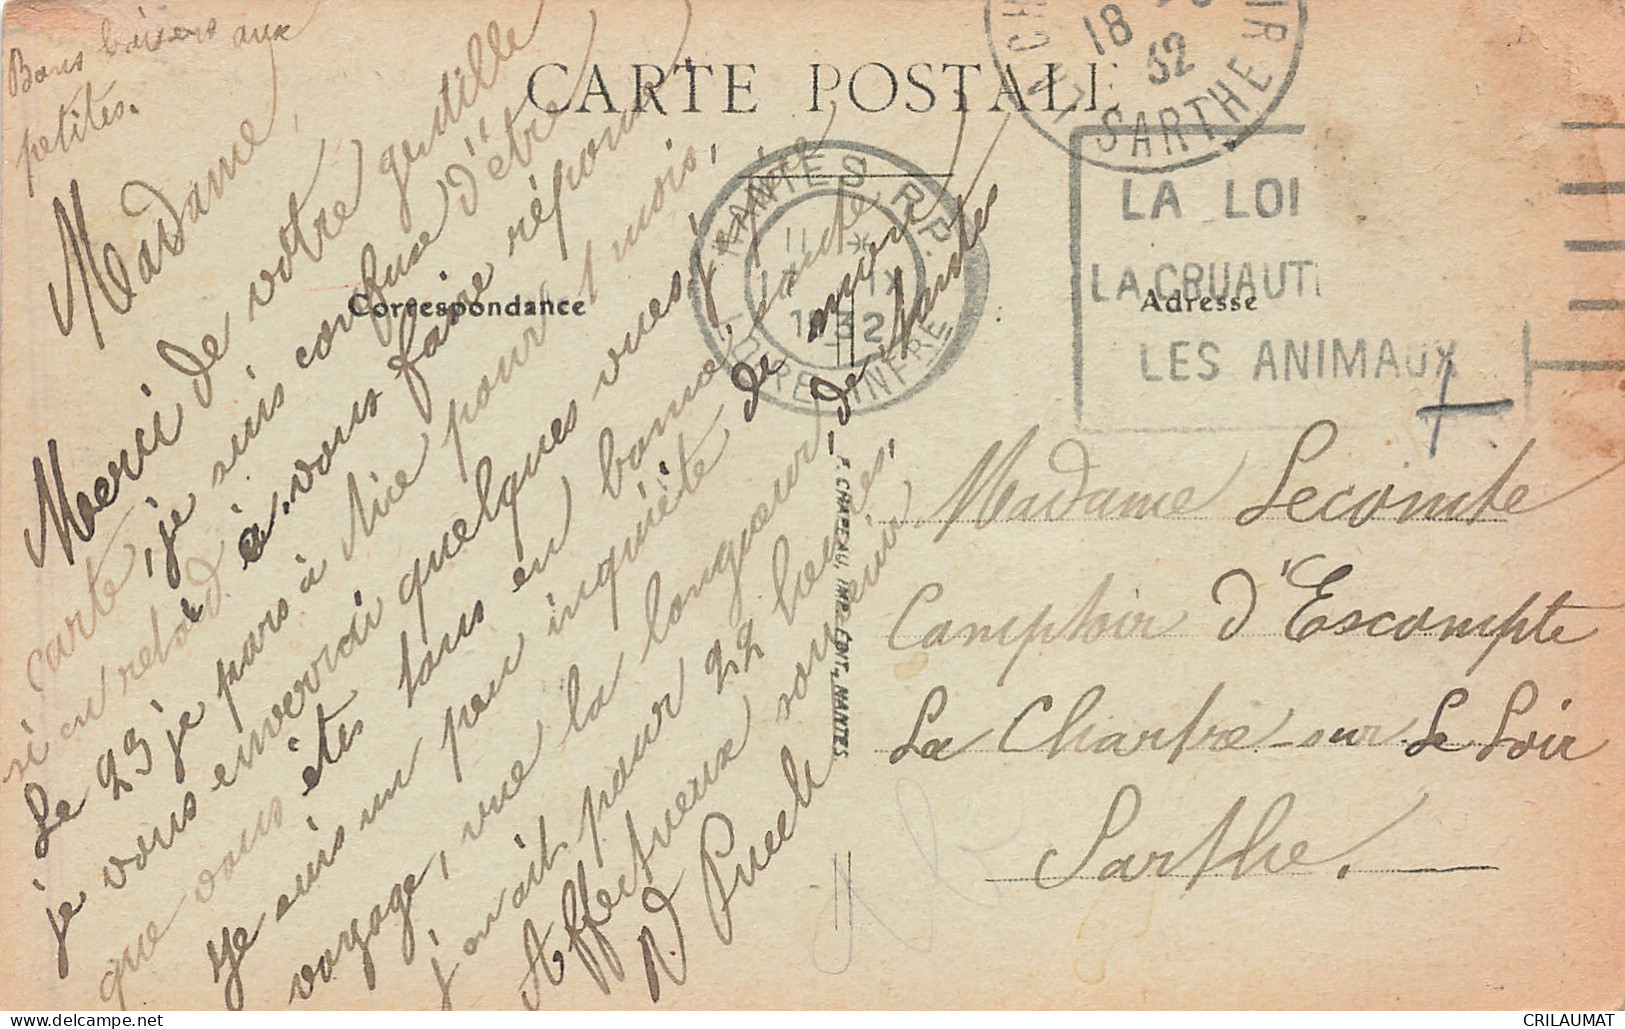 Bons baisers aux
petites.
CARTE POSTALE
18
32
SARTHE
NANTES R.P.
LOIRE INFRE
LA LOI
LA CRUAUT
LES ANIMAUX
Correspondance
Adresse
Madame,
Merci de votre gentille
carte, je suis confuse d'être
si en retard à vous faire réponse
Le 23 je pars à Nice pour 1 mois,
je vous enverrai quelques vues, j'espère
que vous êtes tous en bonne santé
Je suis un peu inquiète de mon
voyage, vue la longueur, de Nantes
j'en ait pour 22 heures,
Affectueux souvenir
Puech
Madame Lecomte
Comptoir d'Escompte
La Chartre-sur Le Loir
Sarthe.
F. CHAPEAU, IMP. CONT., NANTES
CRILAUMAT